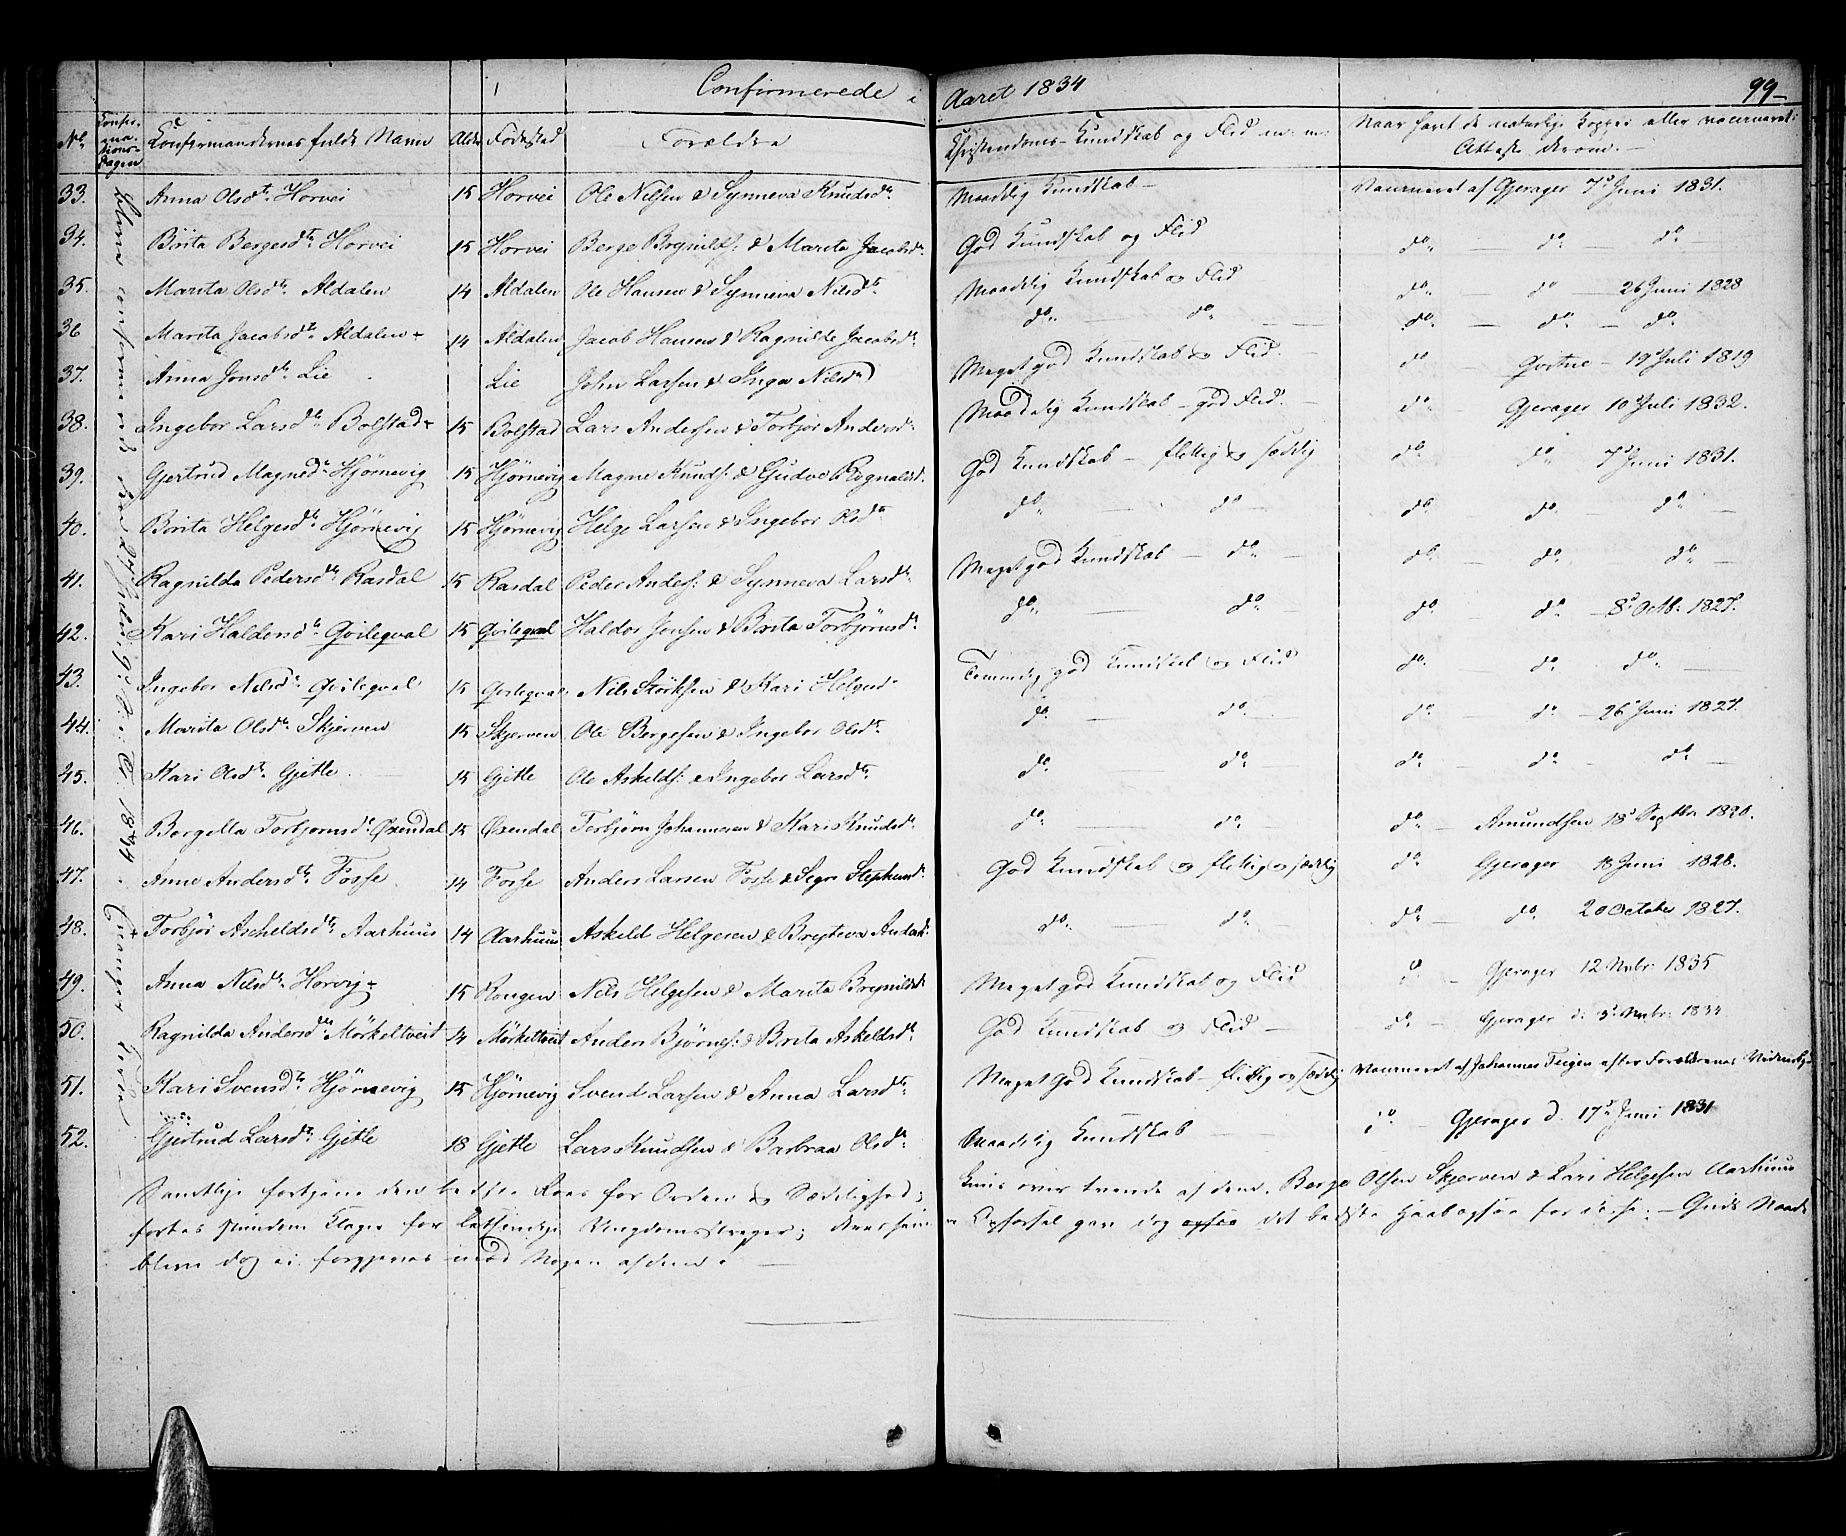 Confirmerede i Aaret 1834 99
No Confirmations Dagen Confirmandernes fulde Navn Alder Fødested Forældre Christendoms-Kundskab og Flid m: m: Naar havt de naturlige Kopper eller vaccineret: Attester derom.
33. Anna Olsdtr Horvei 15 Horvei Ole Nilsen & Synneva Knudsdr Maadelig Kundskab - Vaccineret af Gjerager 7de Juni 1831.
34. Brita Bergesdtr Horvei 15 Horvei Berge Brynilds: & Marita Jacobsdr God Kundskab og Flid do do do
35. Marita Olsdtr Aldalen 14 Aldalen Ole Hansen & Synneva Nilsdtr Maadelig Kundskab og Flid do do 26 Juni 1828
36 Marita Jacobsdtr Aldalen 14 Aldalen Jacob Hansen & Ragnilde Jacobsdr do do do do do
37. Anna Jonsdtr Lie Lie John Larsen & Inga Nilsdr Meget god Kundskab og Flid. do 19 Juli 1819
38. Ingebor Larsdtr Bolstad 15 Bolstad Lars Andersen & Torbjør Andersdr Maadelig Kundskab - god Flid. do Gjerager 10 Juli 1832.
39. Gjertrud Magnedtr Hjørnevig 15 Hjørnevig Magne Knuds: & Gudve Rognaldsd. God Kundskab - flittig og sædelig do do 7 Juni 1831.
40. Brita Helgesdtr Hjørnevig 15 Hjørnevig Helge Larsen & Ingebor Olsdtr do do do do do
41. Ragnilda Pedersdtr Rasdal 15 Rasdal Peder Anders: & Synneva Larsdtr Meget god Kundskab - do do do do
42. Kari Haldorsdtr Qvilequal 15 Qvilequal Haldor Jonsen & Brita Torbjørnsdr do do do do 8de Octb: 1827.
43. Ingebor Nilsdtr Qvilequal 15 Qvilequal Nils Størksen & Kari Helgesd Temmelig god Kundskab og Flid do do do
44. Marita Olsdtr Skjerven 15 Skjerven Ole Bergesen & Ingebor Olsdtr do do do do 26 Juni 1827.
45. Kari Olsdtr Gjetle 15 Gjetle Ole Askelds: & Ingebor Larsdtr do do do do do
46. Bergella Torbjornsdtr Øxendal 15 Øxendal Torbjørn Johannesen & Kari Knudsdr do do do Amundsen 18 Septbr 1820.
47. Anne Andersdtr Fosse 14 Fosse Anders Larsen Fosse & Segri Stephensdr God Kundskab og flittig og sædelig do Gjerager 18 Juni 1828.
48. Torbjør Ascheldsdtr Aarhuus 14 Aarhuus Askeld Helgesen & Brynteva Andersdr do do do do 20 October 1827.
49. Anna Nilsdtr Horvig 15 Rongen Nils Helgesen & Marita Brynildsdr Meget god Kundskab og Flid do Gjerager 12 Novbr: 1835
50. Ragnilda Andersdtr Mørkeltveit 14 Mørkeltveit Anders Bjørns: & Brita Askeldsdr God Kundskab og Flid do Gjerager
51. Kari Svensdtr Hjørnevig 15 Hjørnevig Svend Larsen & Anna Larsdtr Meget God Kundskab - flittig og sædelig Vaccineret af Johannes Teigen efter Forældrenes
52. Gjertrud Larsdtr Gjetle 18 Gjetle Lars Knudsen & Barbraa Olsdr Maadelig Kundskab do Gjerager d. 17de Juni 1831
Samtlige fortjene den bedste Roes for Orden og Sædelighed; kuns over tvende af dem, Berge Olsen Skjerven & Lars Helgesen Aarhuus
førtes Klager for letsindige Ungdomsstreger; deres Opførsel gav dog det bedste Haab for - Guds Naade
blive dog ei forgjeves imod Nogen af dem!